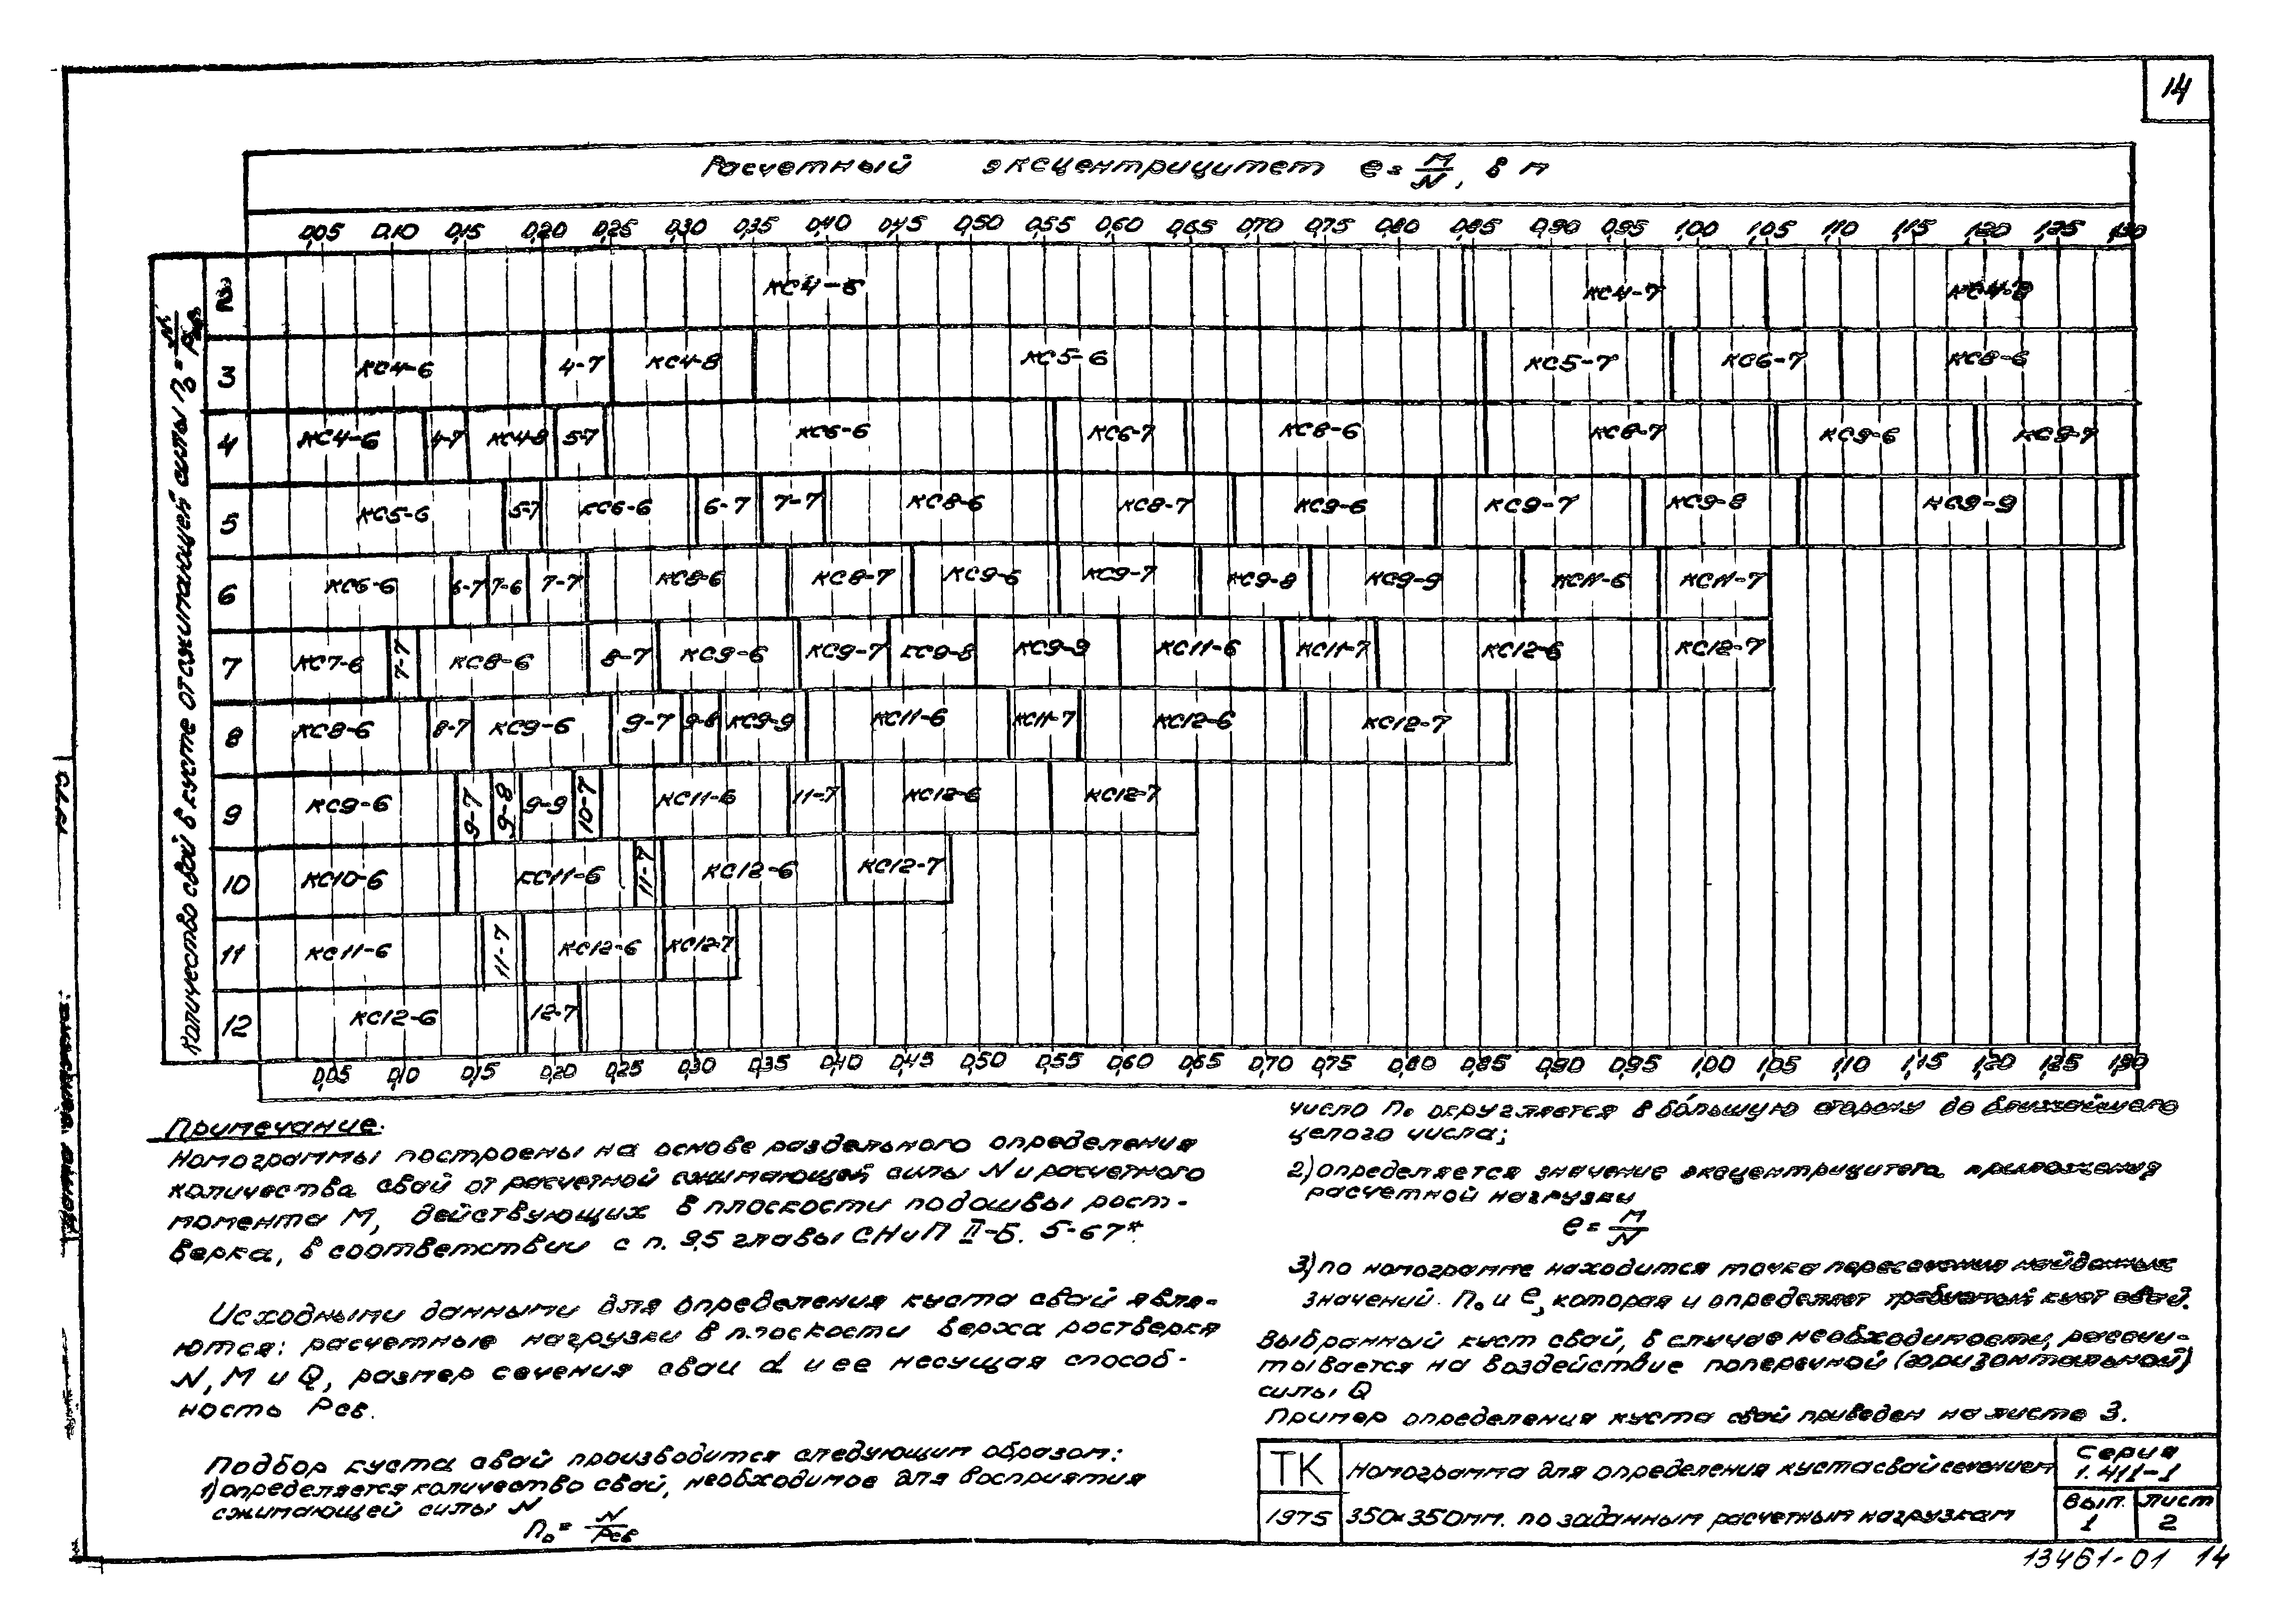 14
Расчетный эксцентрицитет e = M/N, в м
0,05 0,10 0,15 0,20 0,25 0,30 0,35 0,40 0,45 0,50 0,55 0,60 0,65 0,70 0,75 0,80 0,85 0,90 0,95 1,00 1,05 1,10 1,15 1,20 1,25 1,30
Количество свай в кусте от сжимающей силы n₀ = N/Pсв
КС4-6 КС4-7 КС4-8
3 КС4-6 4-7 КС4-8 КС5-6 КС5-7 КС6-7 КС8-6
4 КС4-6 4-7 КС4-8 5-7 КС6-6 КС6-7 КС8-6 КС8-7 КС9-6 КС9-7
5 КС5-6 5-7 КС6-6 6-7 7-7 КС8-6 КС8-7 КС9-6 КС9-7 КС9-8 КС9-9
6 КС6-6 6-7 7-6 7-7 КС8-6 КС8-7 КС9-6 КС9-7 КС9-8 КС9-9 КС11-6 КС11-7
7 КС7-6 7-7 КС8-6 8-7 КС9-6 КС9-7 КС9-8 КС9-9 КС11-6 КС11-7 КС12-6 КС12-7
8 КС8-6 8-7 КС9-6 9-7 9-8 КС9-9 КС11-6 КС11-7 КС12-6 КС12-7
9 КС9-6 9-7 9-8 9-9 10-7 КС11-6 11-7 КС12-6 КС12-7
10 КС10-6 КС11-6 11-7 КС12-6 КС12-7
11 КС11-6 11-7 КС12-6 КС12-7
12 КС12-6 12-7
0,05 0,10 0,15 0,20 0,25 0,30 0,35 0,40 0,45 0,50 0,55 0,60 0,65 0,70 0,75 0,80 0,85 0,90 0,95 1,00 1,05 1,10 1,15 1,20 1,25 1,30
Примечание.
Номограммы построены на основе раздельного определения
количества свай от расчетной сжимающей силы N и расчетного
момента M, действующих в плоскости подошвы рост-
верка, в соответствии с п. 9.5 главы СНиП II-Б. 5-67*.
Исходными данными для определения куста свай явля-
ются: расчетные нагрузки в плоскости верха ростверка
N, M и Q, размер сечения сваи d и ее несущая способ-
ность Pсв.
Подбор куста свай производится следующим образом:
1) определяется количество свай, необходимое для восприятия
сжимающей силы N
n₀ = N/Pсв
число n₀ округляется в бóльшую сторону до ближайшего
целого числа;
2) определяется значение эксцентрицитета приложения
расчетной нагрузки
e = M/N
3) по номограмме находится точка пересечения найденных
значений n₀ и e, которая и определяет требуемый куст свай.
Выбранный куст свай, в случае необходимости, рассчи-
тывается на воздействие поперечной (горизонтальной)
силы Q
Пример определения куста свай приведен на листе 3.
ТК Номограмма для определения куста свай сечением Серия 1.411-1
1975 350×350мм. по заданным расчетным нагрузкам Вып. 1 Лист 2
13461-01 14